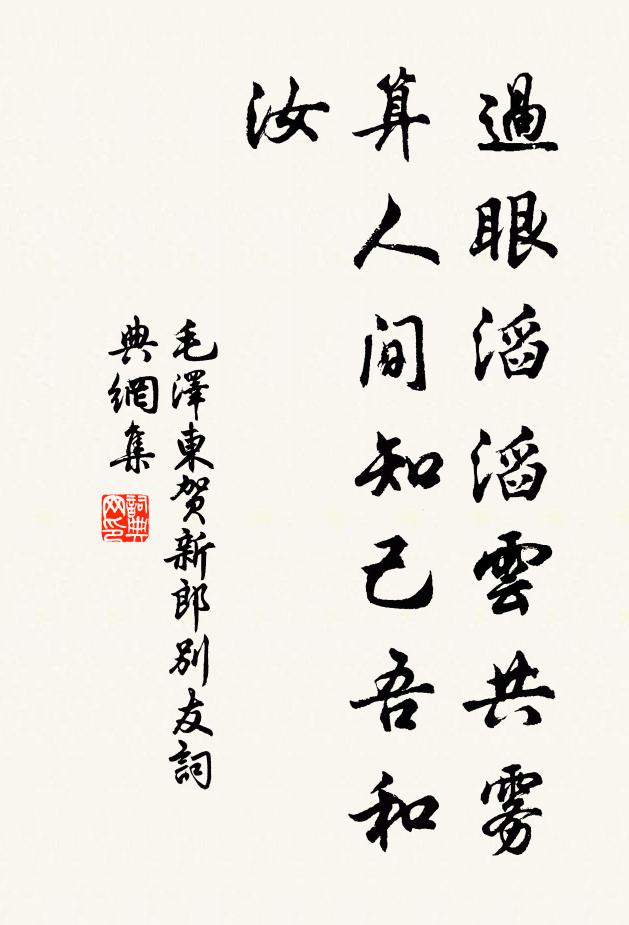 過眼滔滔雲共雾
算人间知己吾和
汝
毛澤東贺新郎别友詞
典網集
詞典
网印